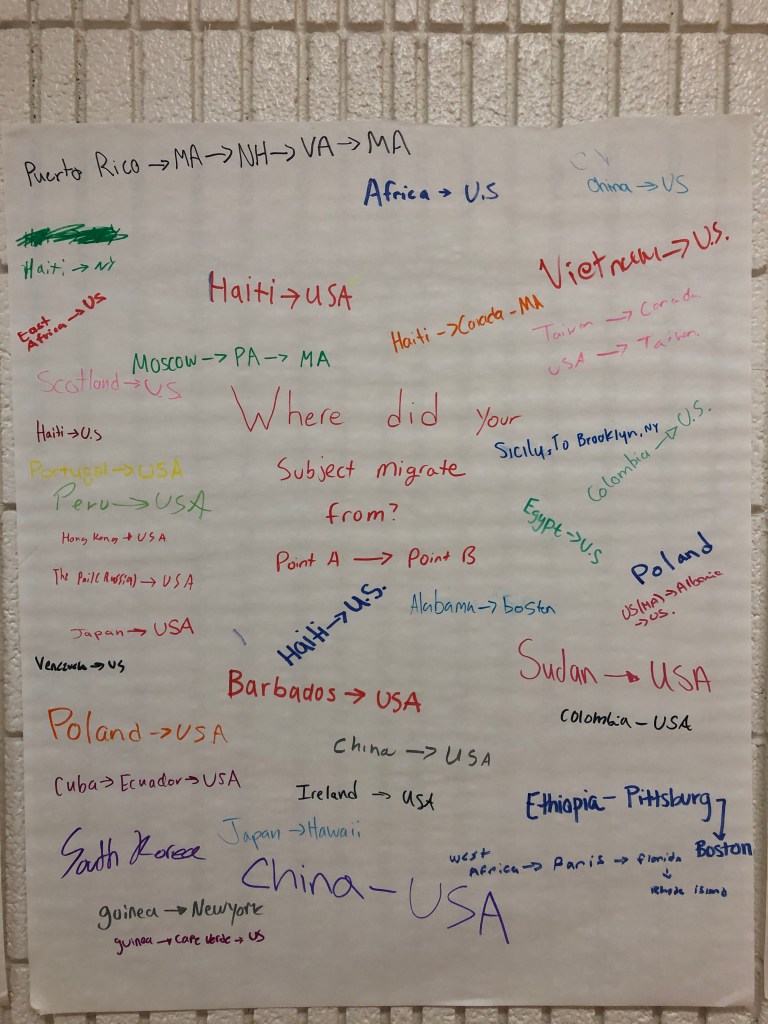 Puerto Rico → MA → NH → VA → MA
Africa → U.S
China → US
Haiti → NY
Vietnam → U.S.
East
Africa → US
Haiti → USA
Haiti → Canada - MA
Taiwan → Canada
USA → Taiwan
Moscow → PA → MA
Scotland → U.S
Where did your
Subject migrate
from?
Point A → Point B
Haiti → U.S
Sicily, To Brooklyn, NY
Colombia → U.S.
Portugal → USA
Peru → USA
Egypt → U.S
Hong Kong → USA
The Pail (Russia) → USA
Poland
US(MA) → Albania
→ US.
Alabama → boston
Haiti → U.S.
Japan → USA
Venezuela → US
Sudan → USA
Barbados → USA
Colombia - USA
Poland → USA
China → USA
Cuba → Ecuador → USA
Ireland → USA
Ethiopia - Pittsburg
Boston
Japan → Hawaii
South Korea
West
Africa → Paris → florida
↓
rhode island
China - USA
guinea → New york
guinea → Cape Verde → US